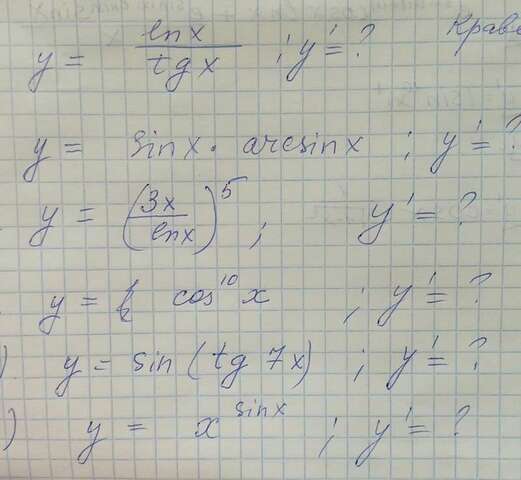 y = lnx/tgx ; y' = ?
y = sinx · arcsinx ; y' = ?
y = (3x/lnx)^5 ; y' = ?
y = cos^10 x ; y' = ?
). y = sin (tg 7x) ; y' = ?
) y = x^sinx ; y' = ?